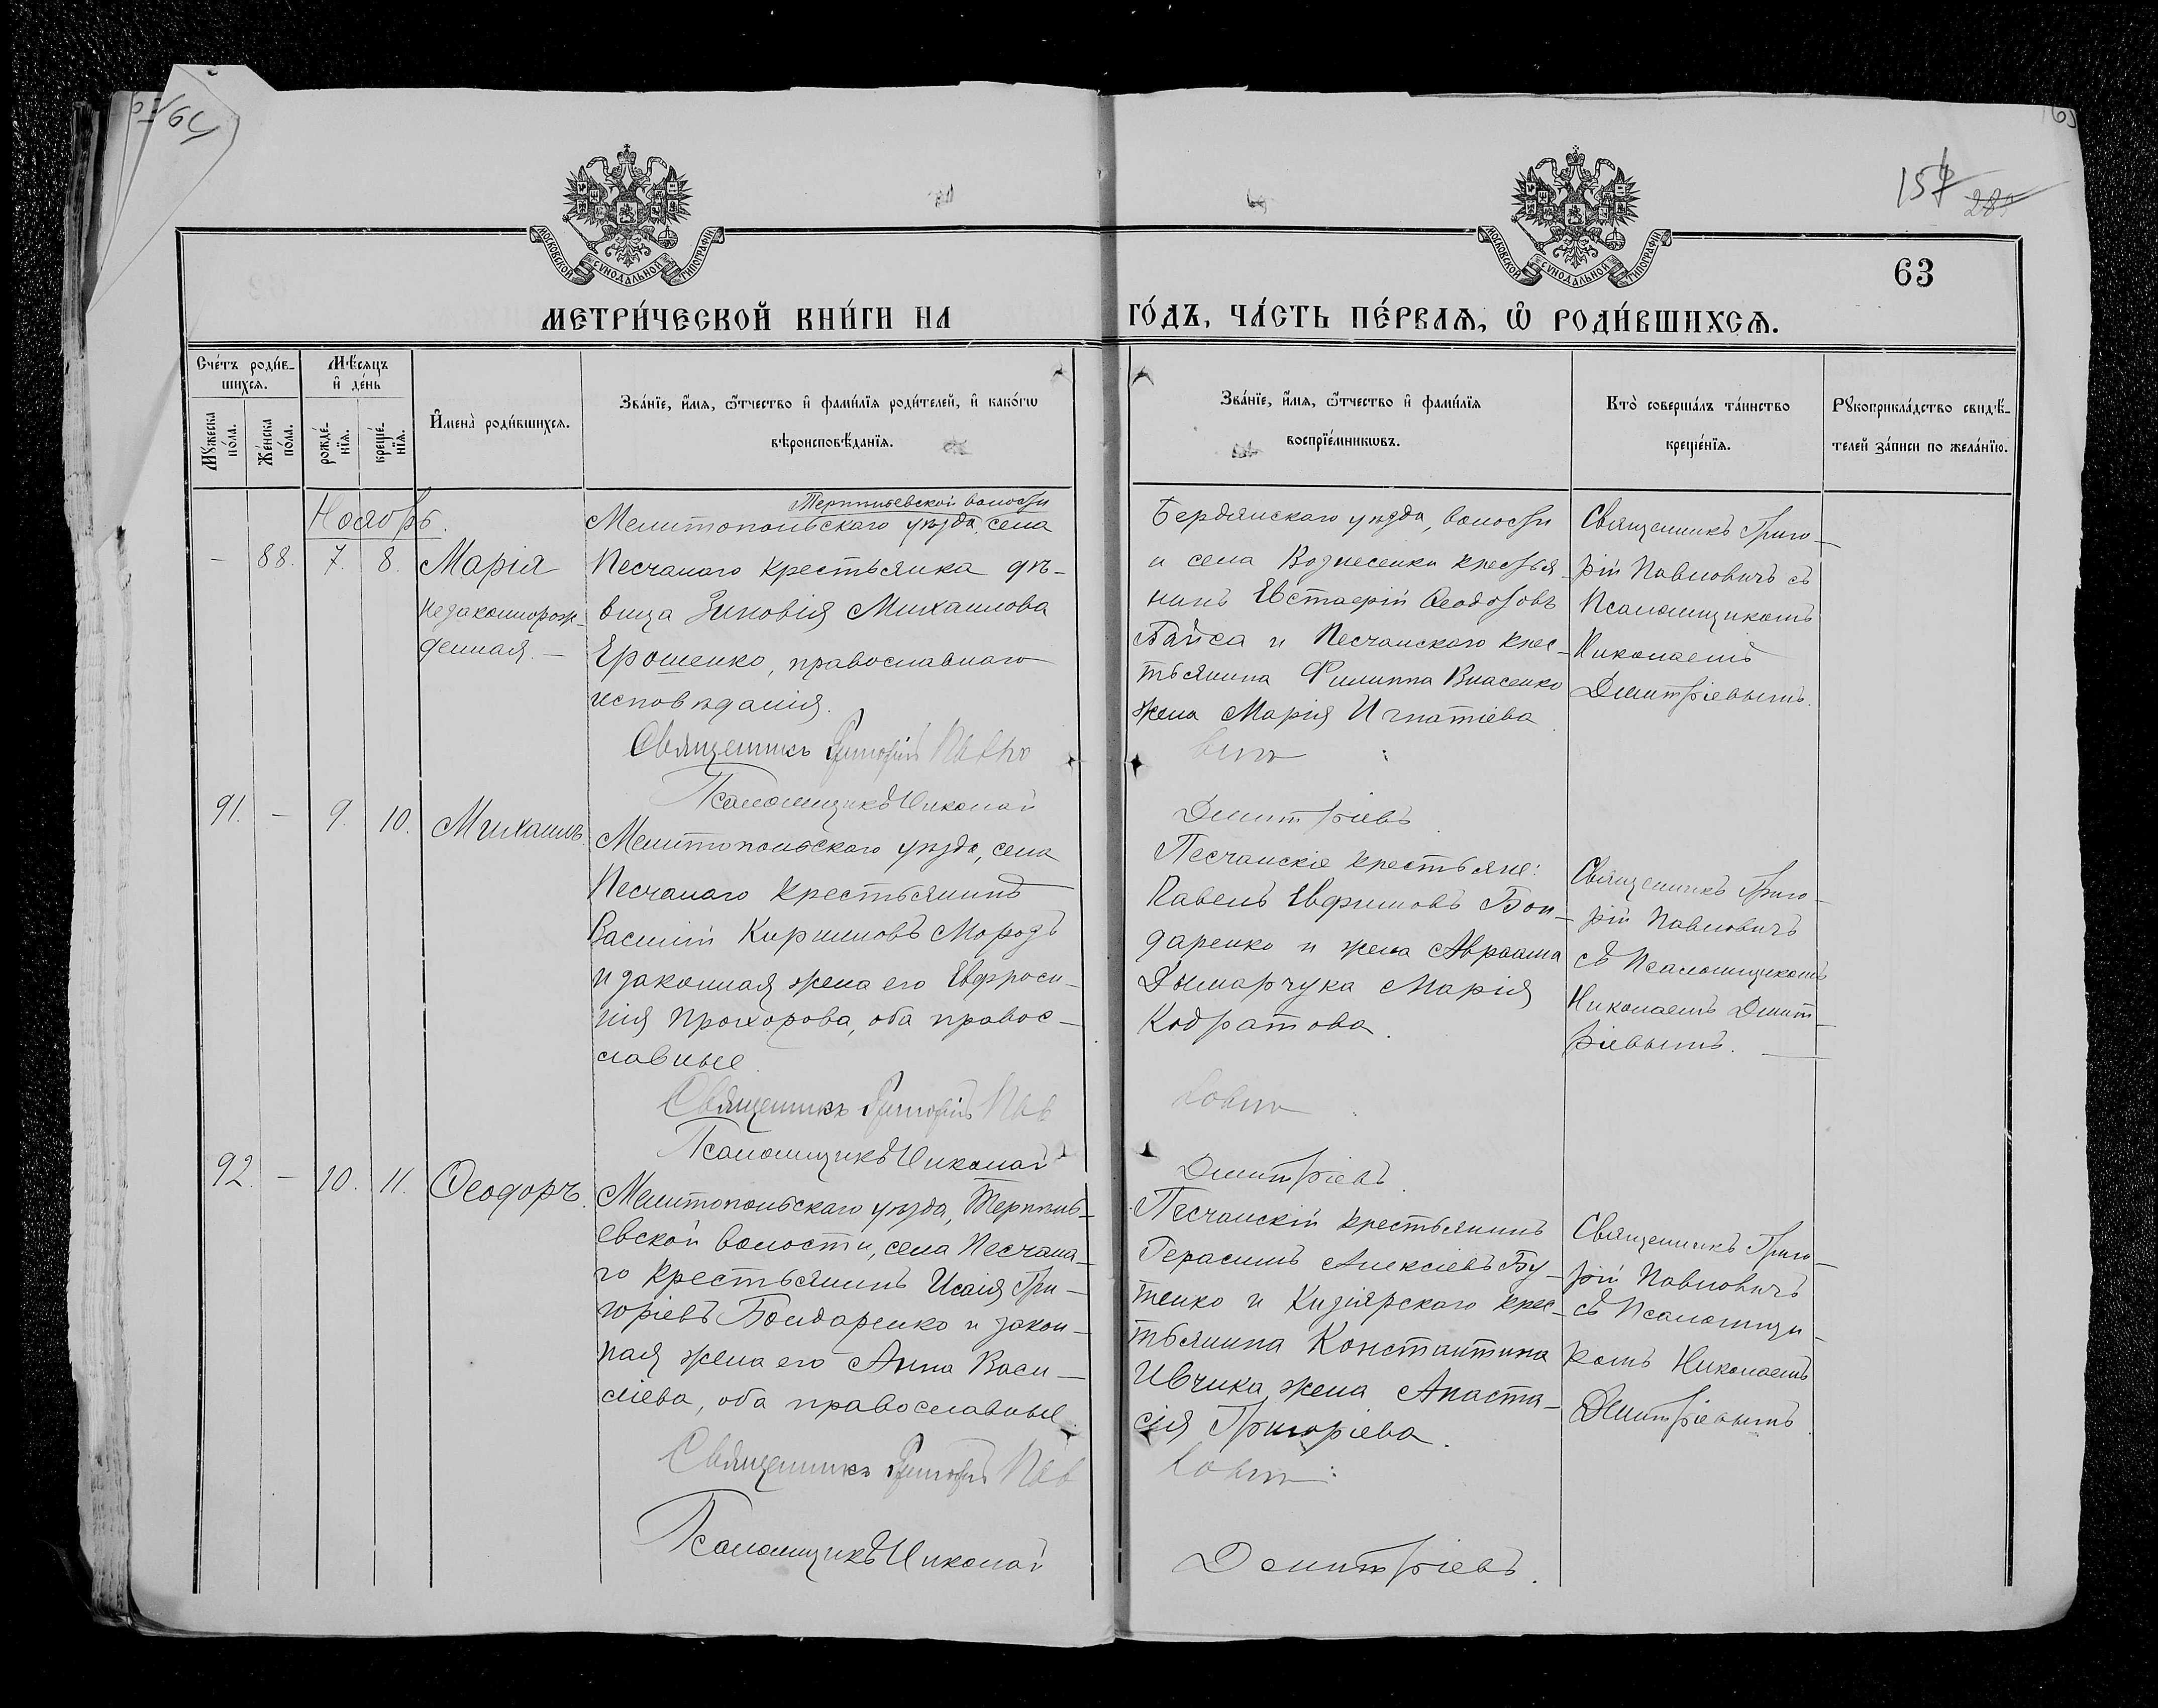 157 289
63
МОСКОВСКОЙ СѴНОДАЛЬНОЙ ТИПОГРАФІИ
МОСКОВСКОЙ СѴНОДАЛЬНОЙ ТИПОГРАФІИ
МЕТРИ́ЧЕСКОЙ КНИ́ГИ НА
ГО́ДЪ, ЧА́СТЬ ПЕ́РВАѦ, Ѡ҆ РОДИ́ВШИХСѦ.
Сче́тъ роди́в-
шихсѧ.
Мꙋ́жеска по́ла.
Же́нска по́ла.
Мѣ́сѧцъ
и҆ де́нь
рожде́-
нїѧ.
креще́-
нїѧ.
И҆мена̀ роди́вшихсѧ.
Зва́нїе, и҆́мѧ, ѻ҆́тчество и҆ фами́лїѧ роди́телей, и҆ како́гѡ
вѣроисповѣ́данїѧ.
Зва́нїе, и҆́мѧ, ѻ҆́тчество и҆ фами́лїѧ
воспрїе́мникѡвъ.
Кто̀ соверша́лъ та́инство
креще́нїѧ.
Рꙋкоприкла́дство свидѣ́-
телей за́писи по жела́нїю.
Ноябрь.
– 88. 7. 8.
Марія
незаконнорож-
денная. –
Терпѣньевской волости
Мелитопольскаго уѣзда, села
Песчанаго крестьянка дѣ-
вица Зиновія Михаилова
Ерошенко, православнаго
исповѣданія.
Священникъ Григорій Павло
Псаломщикъ Николай
Бердянскаго уѣзда, волости
и села Вознесенки крестья-
нинъ Евстаѳій Ѳеодосовъ
Байса и Песчанскаго крес-
тьянина Филиппа Власенко
жена Марія Игнатіева
вичъ
Дмитріевъ
Священникъ Григо-
рій Павловичъ съ
Псаломщикомъ
Николаемъ
Дмитріевымъ.
91. – 9. 10.
Михаилъ.
Мелитопольскаго уѣзда, села
Песчанаго крестьянинъ
Василій Кирилловъ Морозъ
и законная жена его Евфроси-
нія Прохорова, оба правос-
лавные.
Священникъ Григорій Пав
Псаломщикъ Николай
Песчанскіе крестьяне:
Павелъ Евфимовъ Бон-
даренко и жена Авраама
Дымарчука Марія
Кодратова.
ловичъ
Дмитріевъ.
Священникъ Григо-
рій Павловичъ
съ Псаломщикомъ
Николаемъ Дмит-
ріевымъ. –
92. – 10. 11.
Ѳеодоръ.
Мелитопольскаго уѣзда, Терпѣнь-
евской волости, села Песчана-
го крестьянинъ Исаія Гри-
горіевъ Бондаренко и закон-
ная жена его Анна Васи-
ліева, оба православные.
Священникъ Григорій Пав
Псаломщикъ Николай
Песчанскій крестьянинъ
Герасимъ Алексіевъ Бу-
тенко и Кизіярскаго крес-
тьянина Константина
Ивчика, жена Анаста-
сія Григоріева.
ловичъ
Дмитріевъ.
Священникъ Григо-
рій Павловичъ
съ Псаломщи-
комъ Николаемъ
Дмитріевымъ.